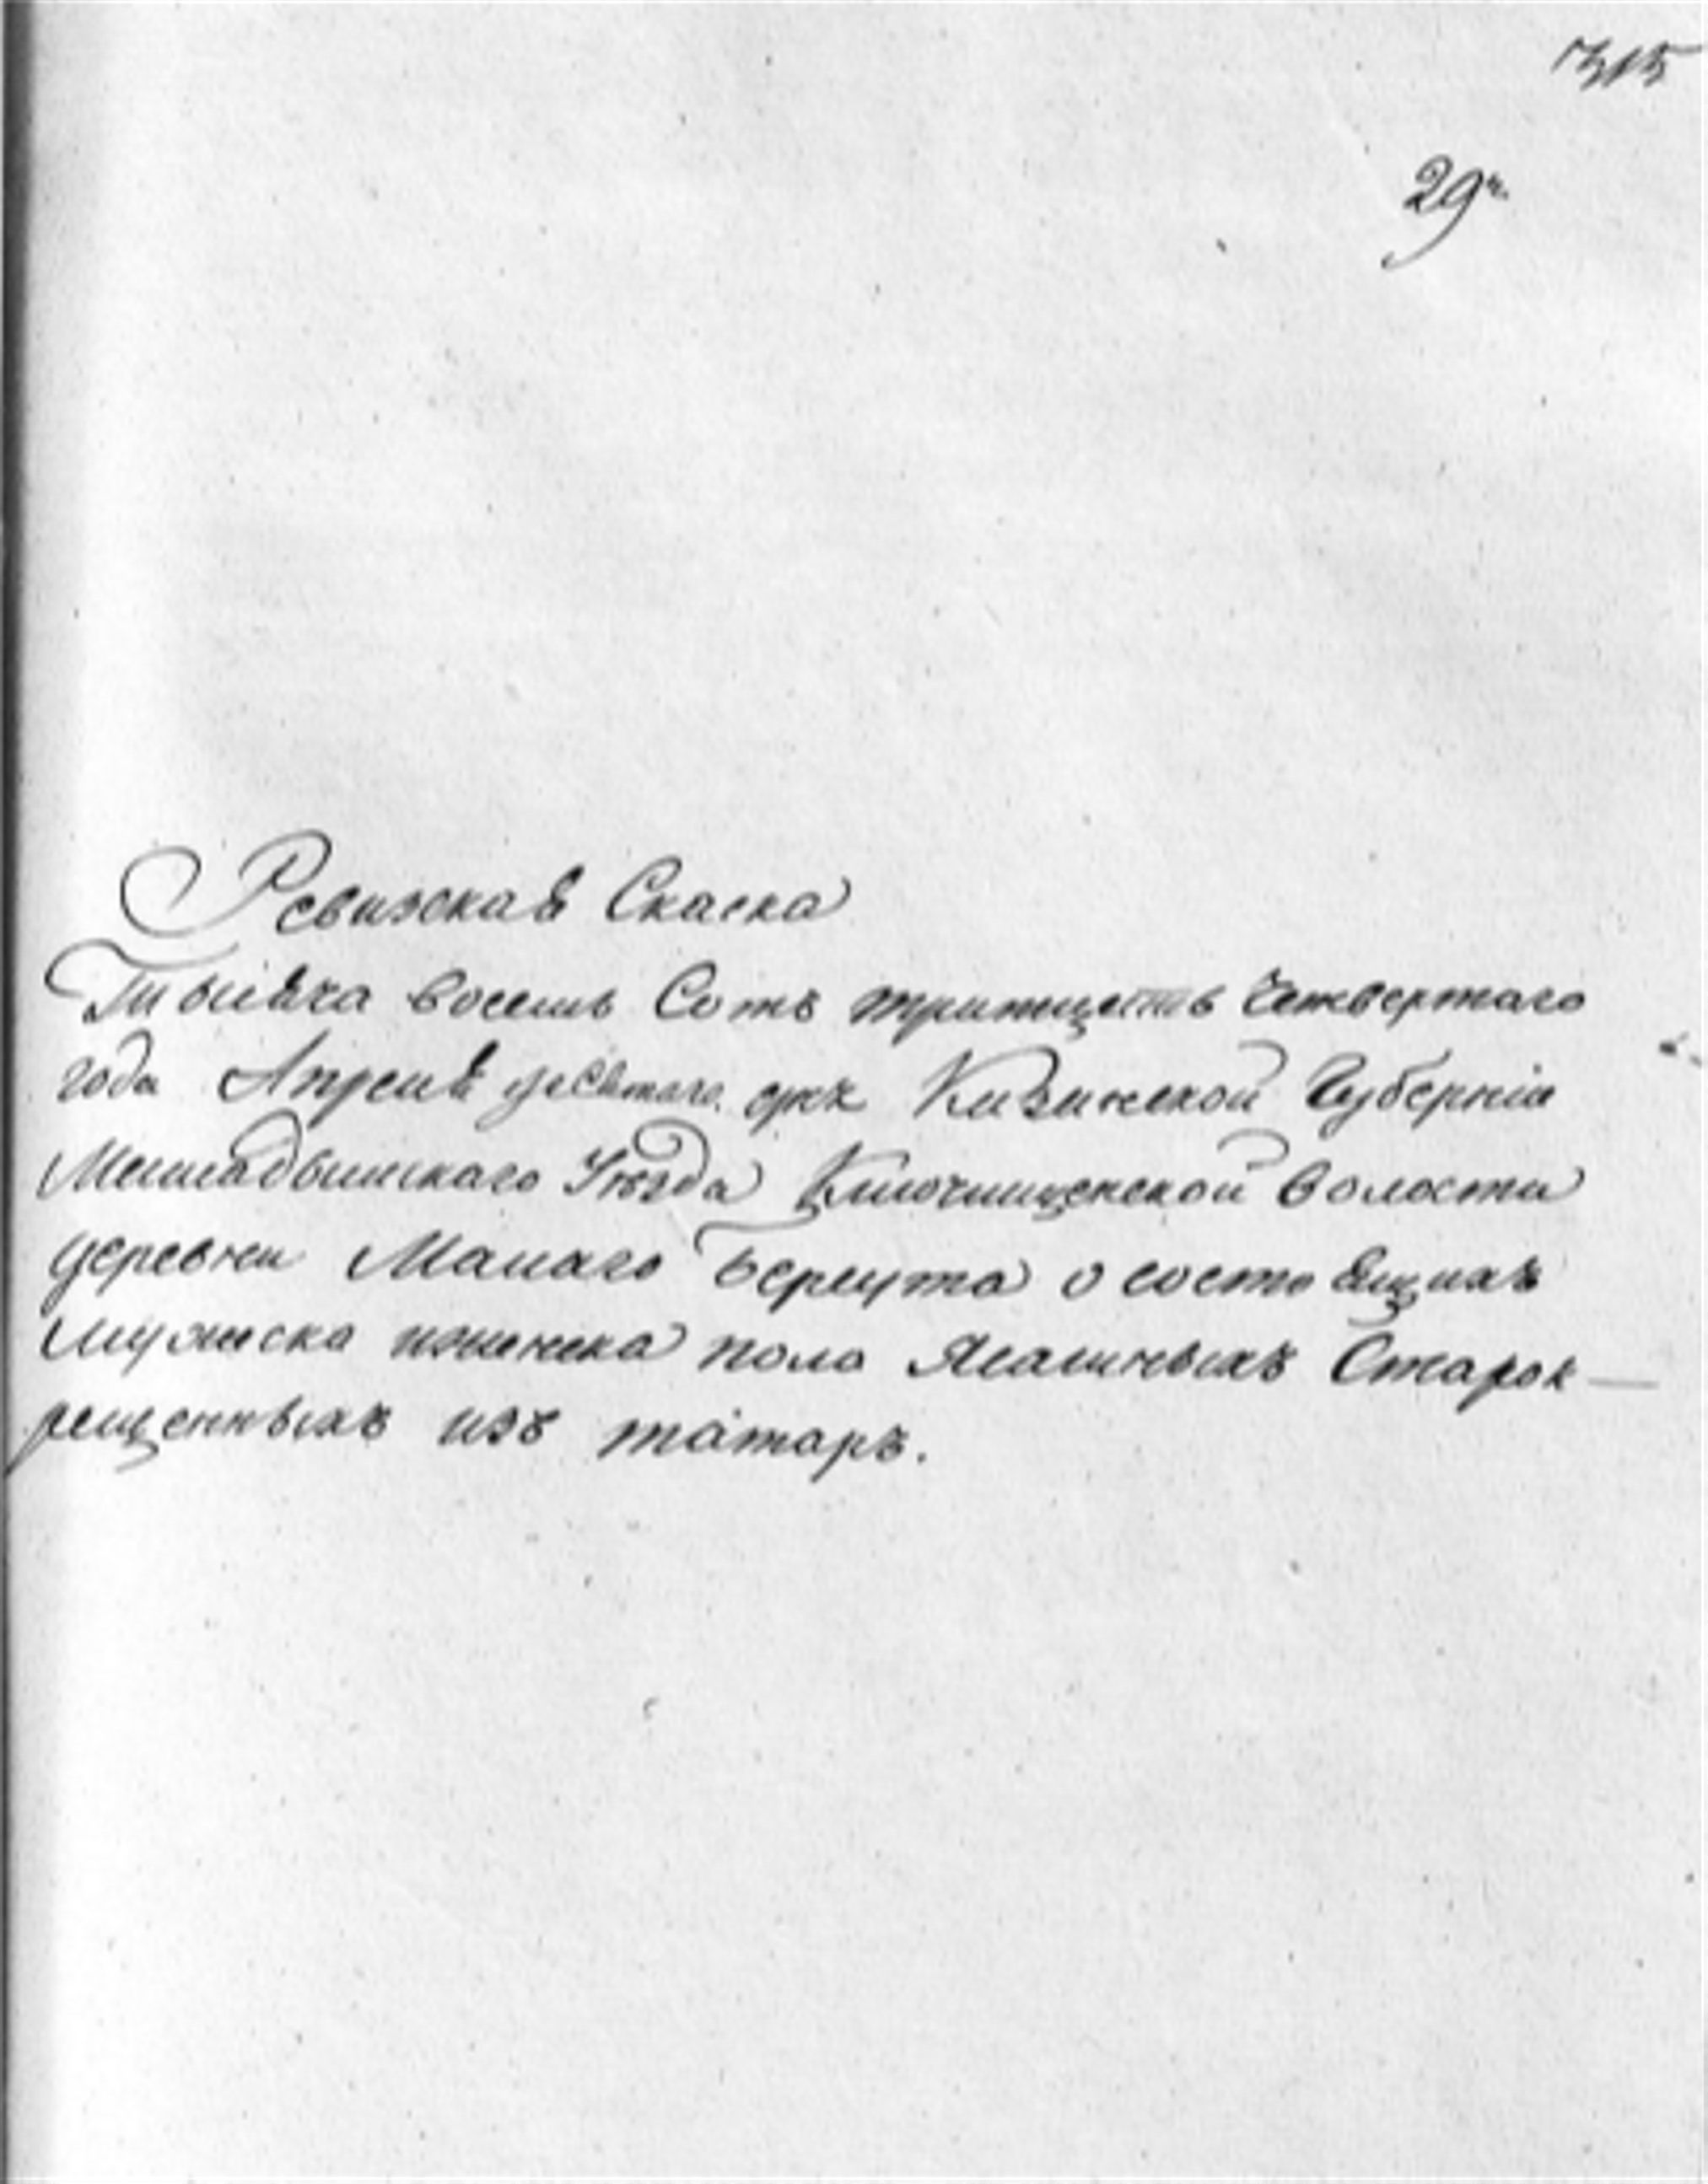 315
29
Ревизская Скаска
Тысяча восемь Сотъ тритцеть Четвертаго
года Апреля десятаго дня Казанской Губерніи
Мамадышскаго Уѣзда Ключищенской волости
деревни Малаго Берсута о состоящихъ
мужеска иженска пола Ясашныхъ Старок-
рещенныхъ изъ татаръ.